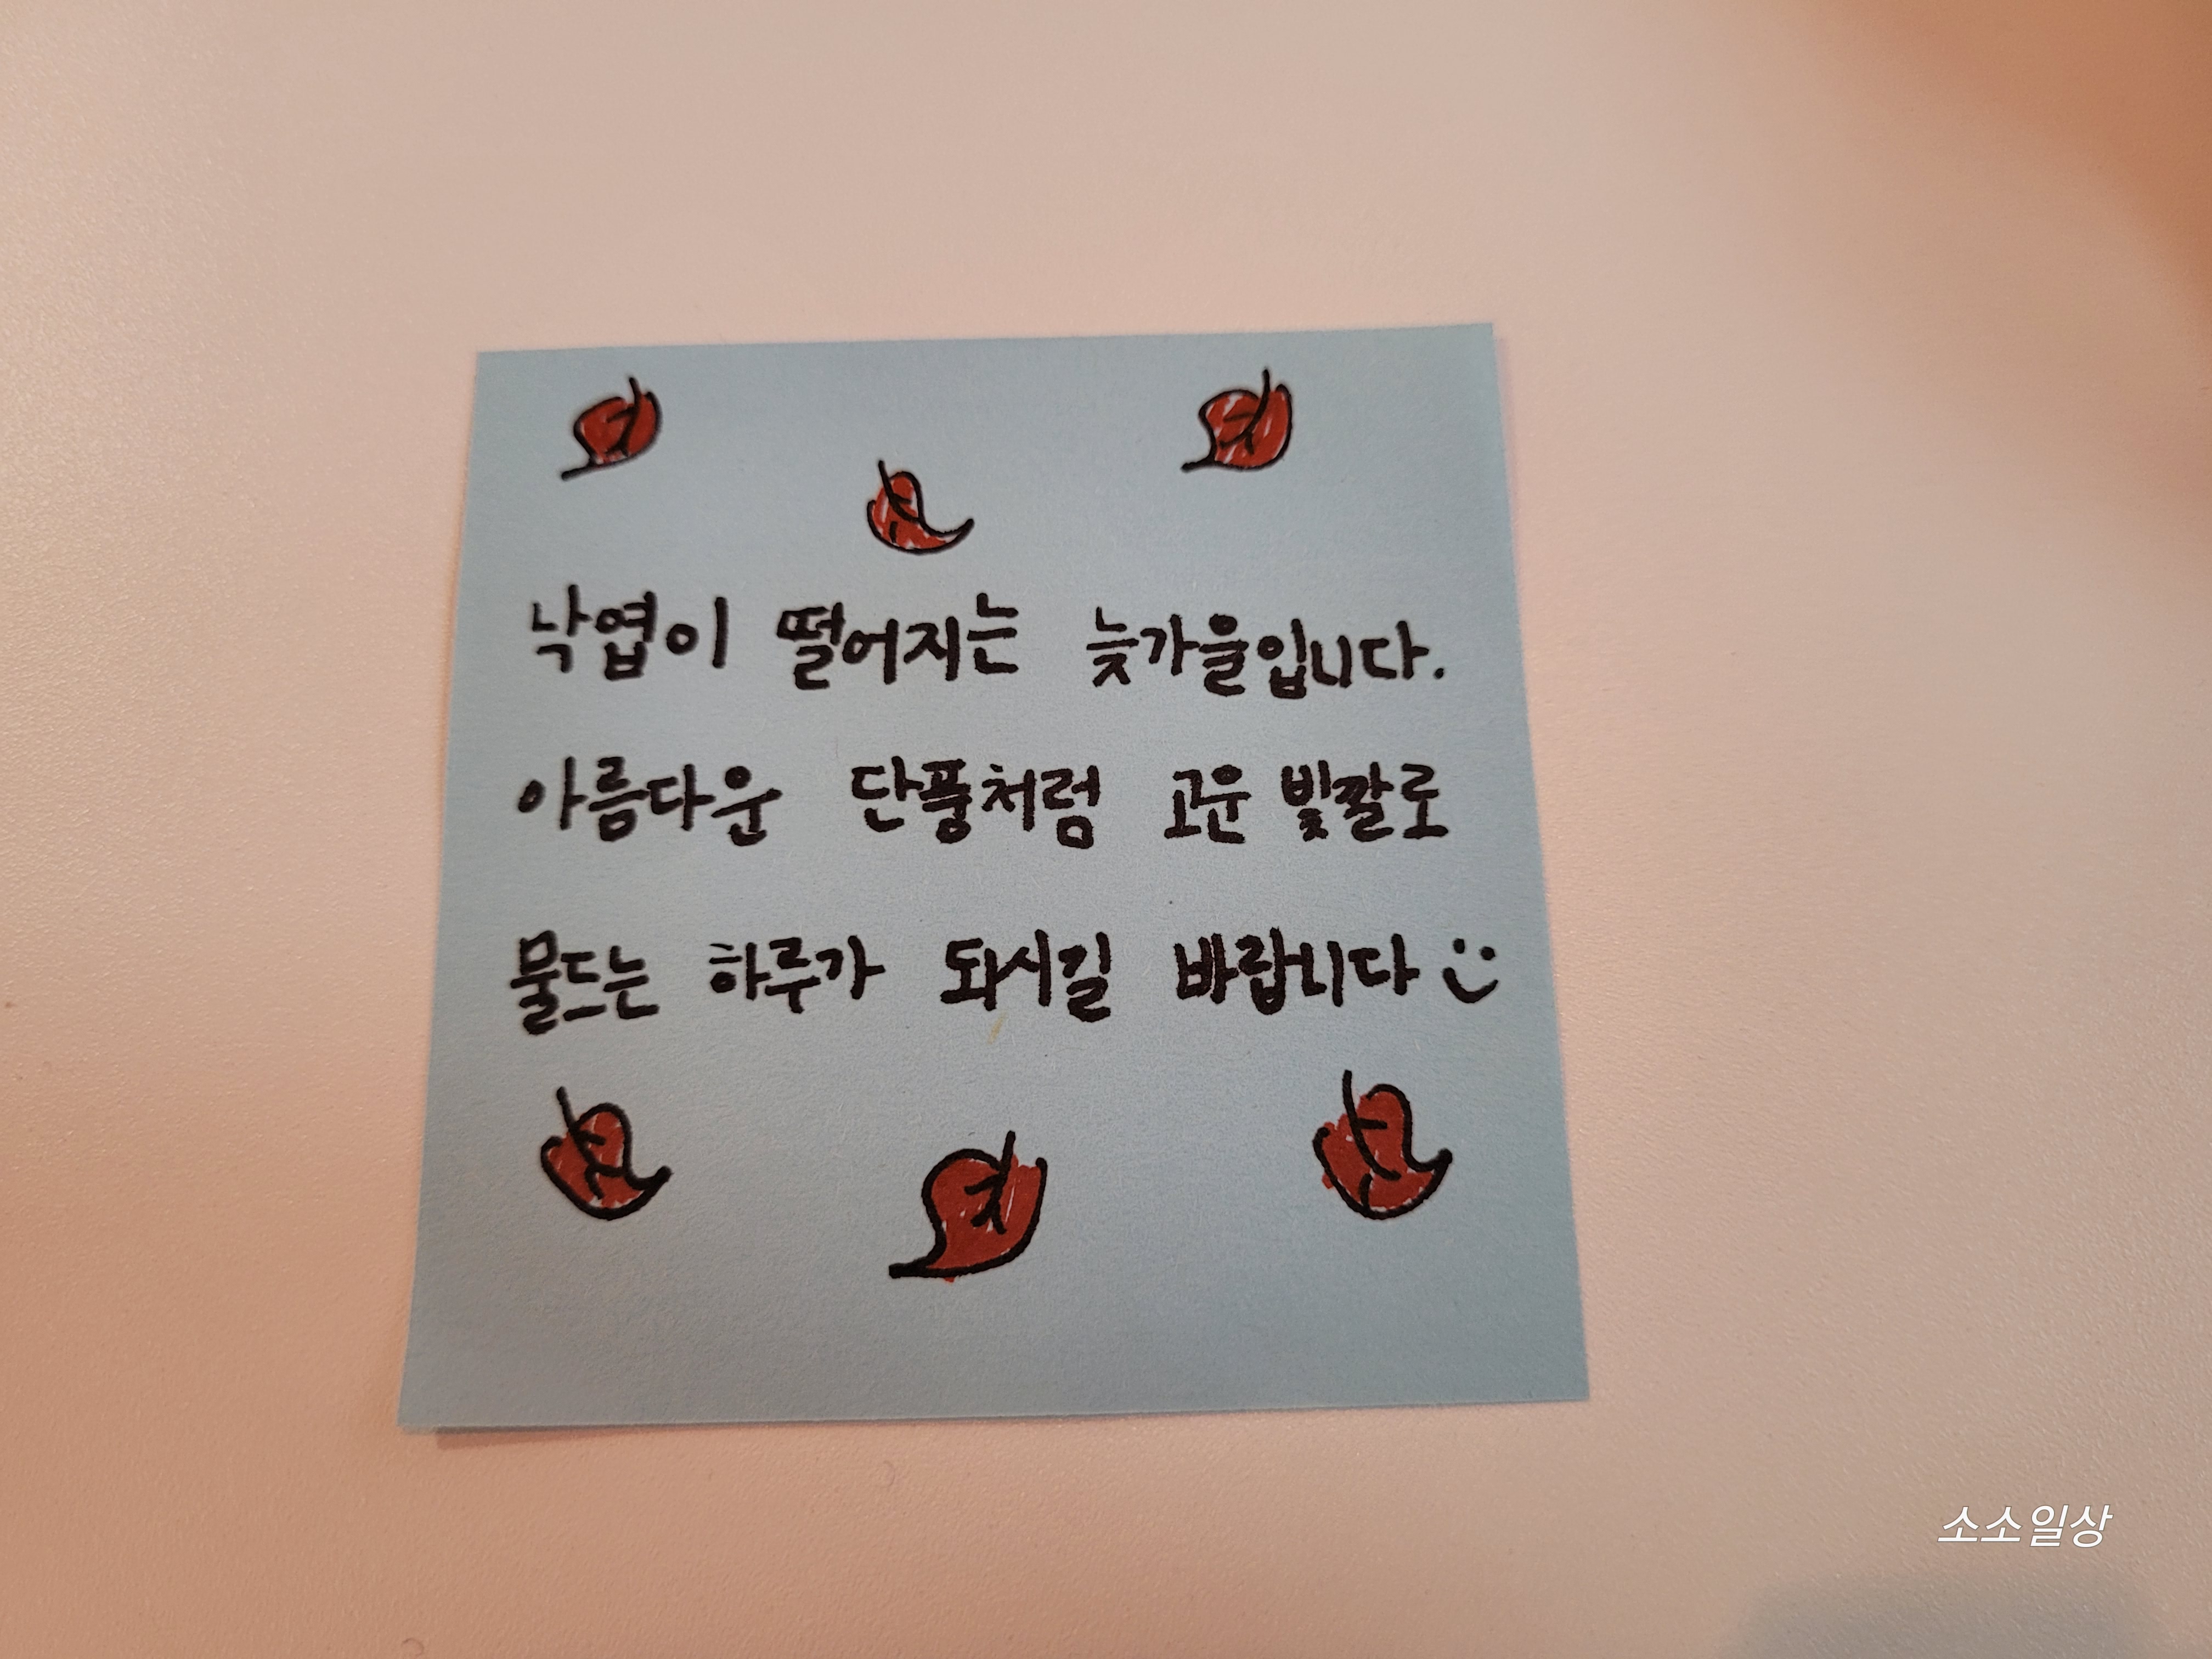 낙엽이 떨어지는 늦가을입니다.
아름다운 단풍처럼 고운 빛깔로
물드는 하루가 돠시길 바랍니다
소소일상